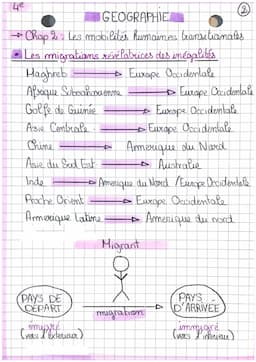 4e
②
GEOGRAPHIE
→ Chap 2 : Les mobilités humaines transnationales
Les migrations révélatrices des inégalités
Maghreb → Europe Occidentale
Afrique Subsaharienne → Europe Occidentale
Golfe de Guinée → Europe Occidentale
Asie Centrale → Europe Occidentale
Chine → Amérique du Nord
Asie du Sud Est → Australie
Inde → Amérique du Nord / Europe Occidentale
Proche Orient → Europe Occidentale
Amérique Latine → Amérique du nord
Migrant
PAYS DE DÉPART
migration
PAYS D'ARRIVÉE
émigré
(vers l'extérieur)
immigré
(vers l'intérieur)